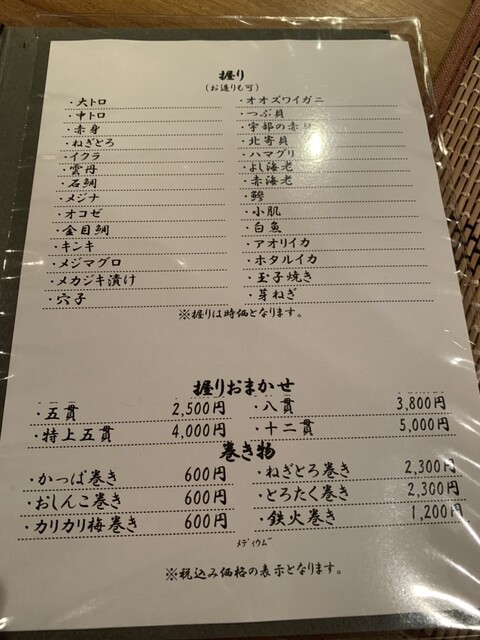 握り
(お造りも可)
・大トロ
・中トロ
・赤身
・ねぎとろ
・イクラ
・雲丹
・石鯛
・メジナ
・オコゼ
・金目鯛
・キンキ
・メジマグロ
・メカジキ漬け
・穴子
・オオズワイガニ
・つぶ貝
・宇部の赤
・北寄貝
・ハマグリ
・よし海老
・赤海老
・鯵
・小肌
・白魚
・アオリイカ
・ホタルイカ
・玉子焼き
・芽ねぎ
※握りは時価となります。
握りおまかせ
・五貫 2,500円
・特上五貫 4,000円
・八貫 3,800円
・十二貫 5,000円
巻き物
・かっぱ巻き 600円
・おしんこ巻き 600円
・カリカリ梅巻き 600円
・ねぎとろ巻き 2,300円
・とろたく巻き 2,300円
・鉄火巻き 1,200円
ﾒﾃﾞｨｳﾑﾞ
※税込み価格の表示となります。